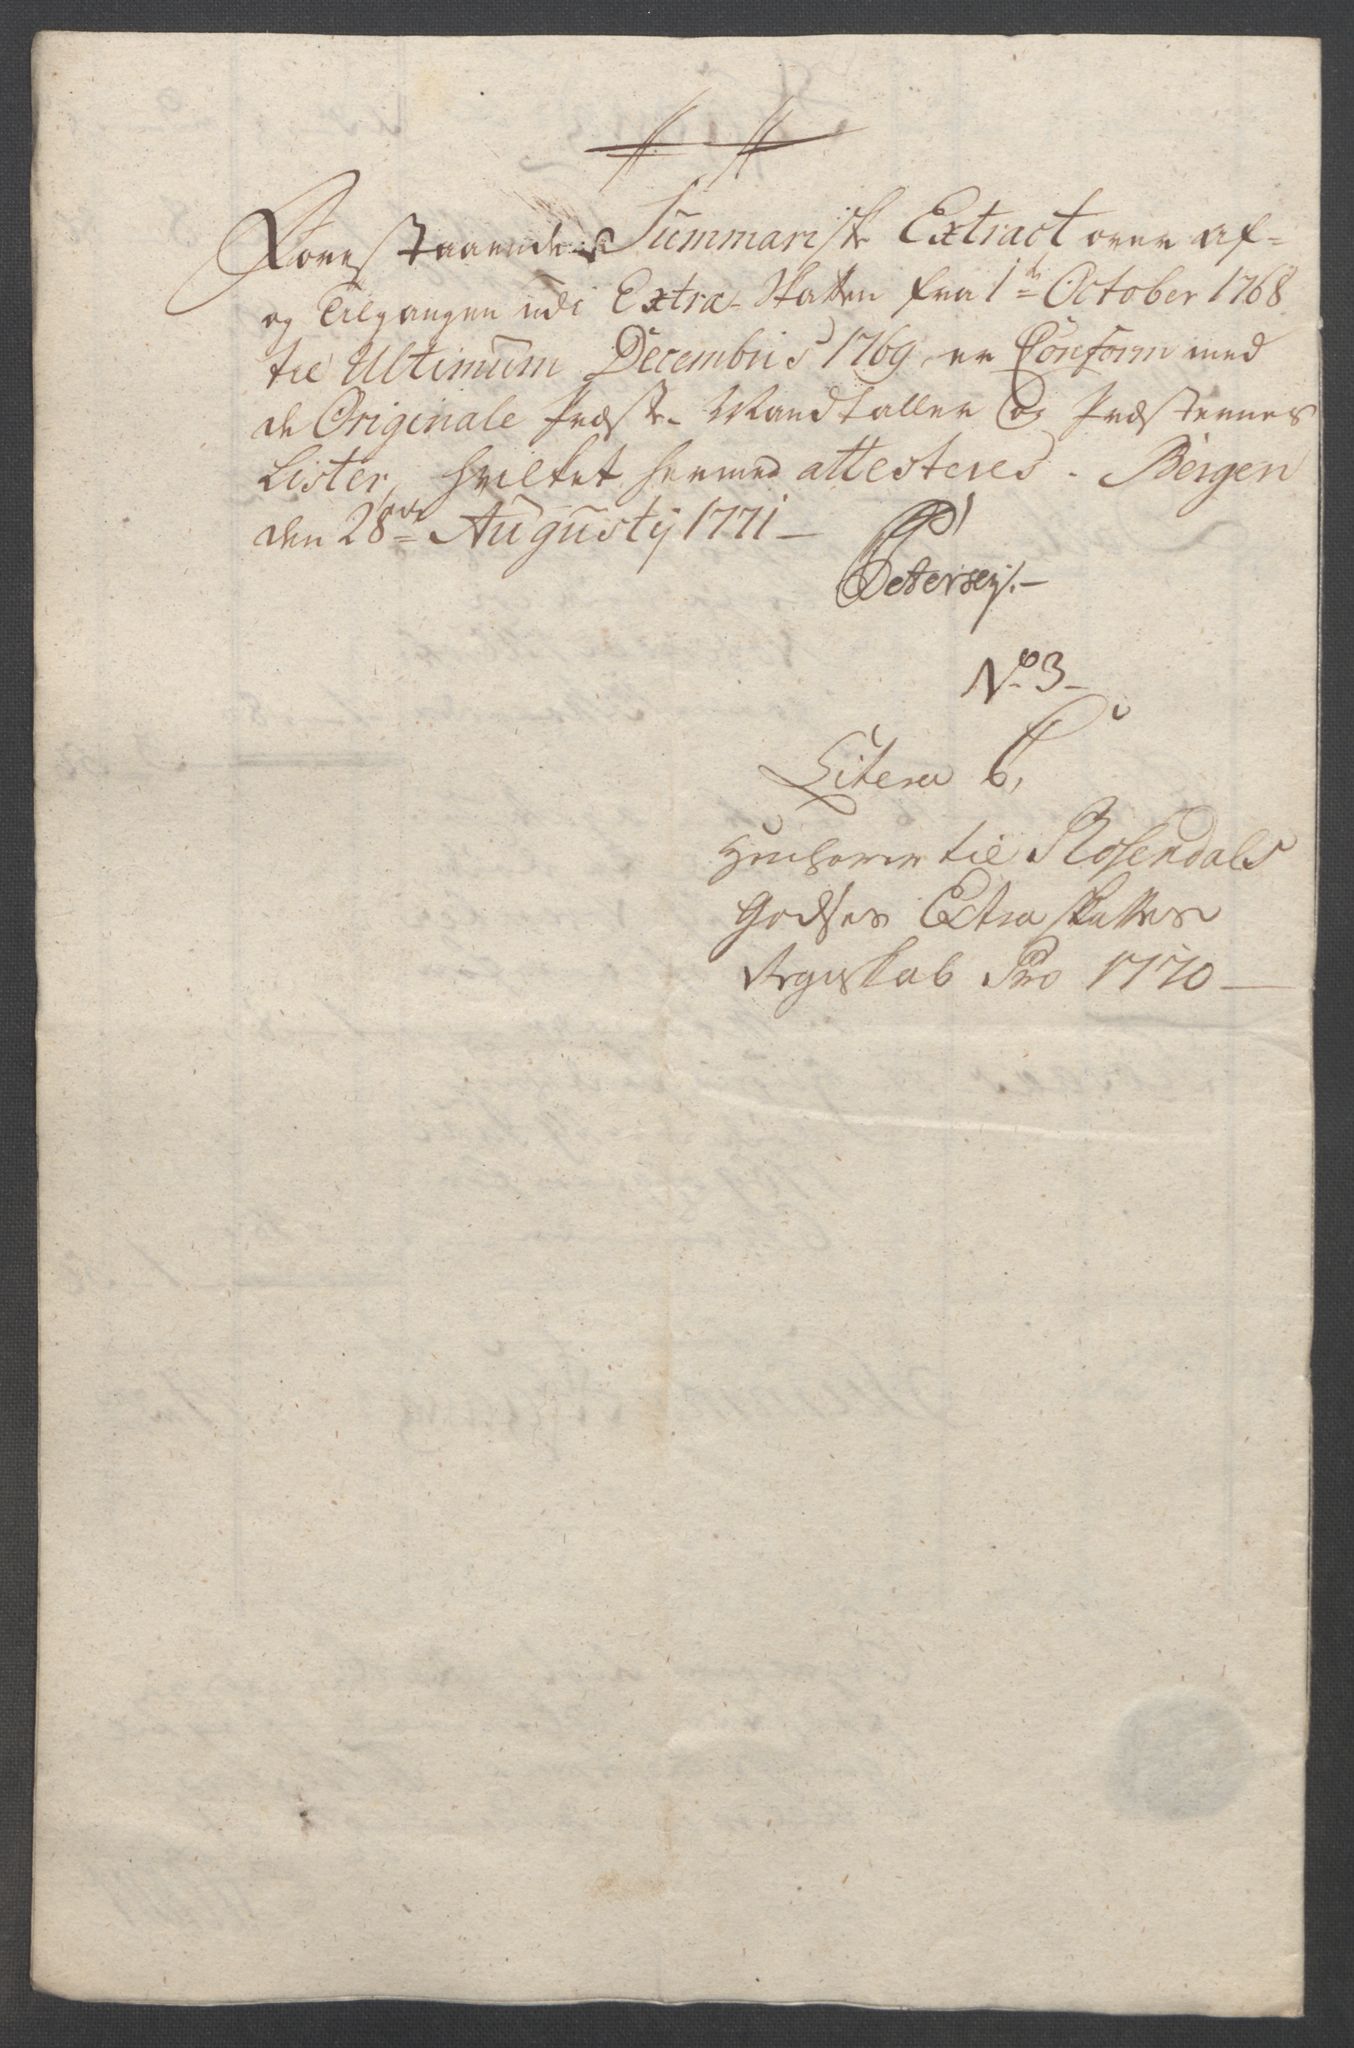 Forestaaende Summarisk Extract over af-
og Tilgangen udi Extra-Skatten fra 1te October 1768
til Ultimum Decembris 1769, er Conform med
de Originale Præste-Mandtaller og Præsternes
Lister, hvilket hermed attesteres. Bergen
den 28de Augustij 1771 —
Petersen /. —
No 3 —
Litera b,
Henhører til Rosendals
Godses Extra Skattes
Regnskab Pro 1770 —